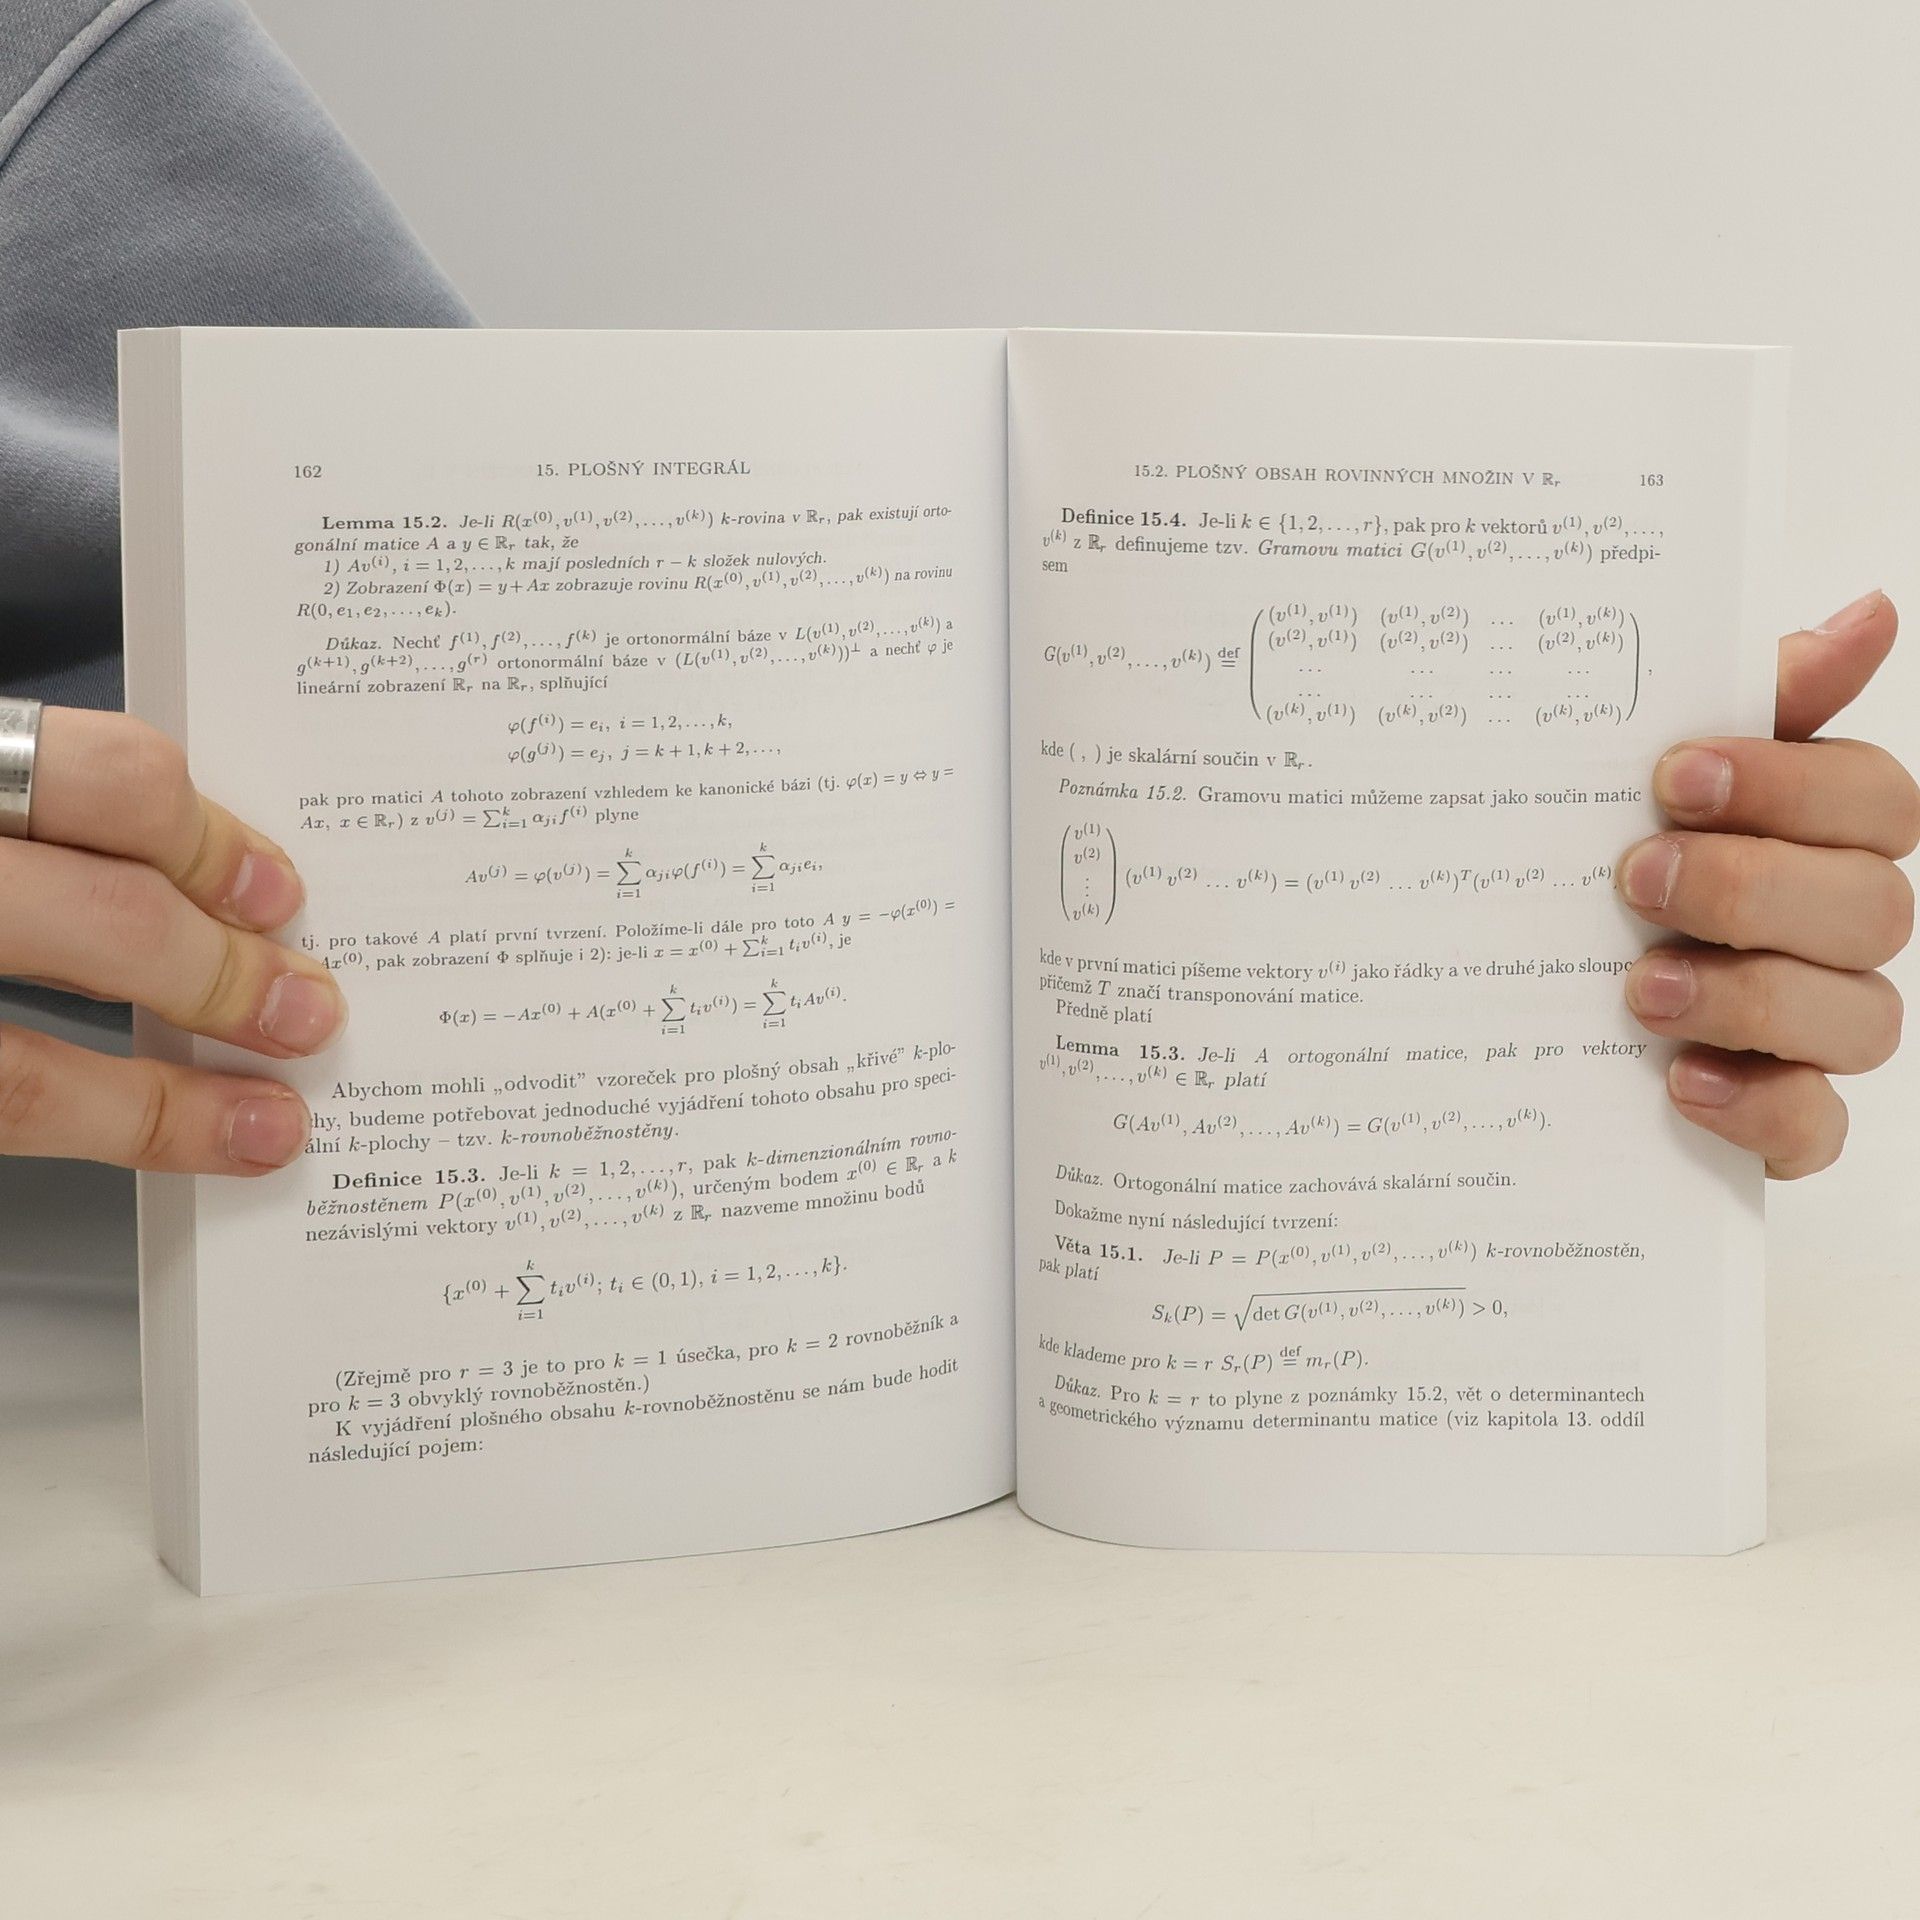 162 15. PLOŠNÝ INTEGRÁL
Lemma 15.2. Je-li R(x⁽⁰⁾, v⁽¹⁾, v⁽²⁾, . . . , v⁽ᵏ⁾) k-rovina v ℝᵣ, pak existují orto-
gonální matice A a y ∈ ℝᵣ tak, že
1) Av⁽ⁱ⁾, i = 1, 2, . . . , k mají posledních r − k složek nulových.
2) Zobrazení Φ(x) = y + Ax zobrazuje rovinu R(x⁽⁰⁾, v⁽¹⁾, v⁽²⁾, . . . , v⁽ᵏ⁾) na rovinu
R(0, e₁, e₂, . . . , eₖ).
Důkaz. Nechť f⁽¹⁾, f⁽²⁾, . . . , f⁽ᵏ⁾ je ortonormální báze v L(v⁽¹⁾, v⁽²⁾, . . . , v⁽ᵏ⁾) a
g⁽ᵏ⁺¹⁾, g⁽ᵏ⁺²⁾, . . . , g⁽ʳ⁾ ortonormální báze v (L(v⁽¹⁾, v⁽²⁾, . . . , v⁽ᵏ⁾))⊥ a nechť φ je
lineární zobrazení ℝᵣ na ℝᵣ, splňující
φ(f⁽ⁱ⁾) = eᵢ, i = 1, 2, . . . , k,
φ(g⁽ʲ⁾) = eⱼ, j = k + 1, k + 2, . . . ,
pak pro matici A tohoto zobrazení vzhledem ke kanonické bázi (tj. φ(x) = y ⇔ y =
Ax, x ∈ ℝᵣ) z v⁽ʲ⁾ = ∑ᵢ₌₁ᵏ αⱼᵢf⁽ⁱ⁾ plyne
Av⁽ʲ⁾ = φ(v⁽ʲ⁾) = ∑ᵢ₌₁ᵏ αⱼᵢφ(f⁽ⁱ⁾) = ∑ᵢ₌₁ᵏ αⱼᵢeᵢ,
tj. pro takové A platí první tvrzení. Položíme-li dále pro toto A y = −φ(x⁽⁰⁾) =
Ax⁽⁰⁾, pak zobrazení Φ splňuje i 2): je-li x = x⁽⁰⁾ + ∑ᵢ₌₁ᵏ tᵢv⁽ⁱ⁾, je
Φ(x) = −Ax⁽⁰⁾ + A(x⁽⁰⁾ + ∑ᵢ₌₁ᵏ tᵢv⁽ⁱ⁾) = ∑ᵢ₌₁ᵏ tᵢAv⁽ⁱ⁾.
Abychom mohli „odvodit” vzoreček pro plošný obsah „křivé” k-plo-
chy, budeme potřebovat jednoduché vyjádření tohoto obsahu pro speci-
ální k-plochy – tzv. k-rovnoběžnostěny.
Definice 15.3. Je-li k = 1, 2, . . . , r, pak k-dimenzionálním rovno-
běžnostěnem P(x⁽⁰⁾, v⁽¹⁾, v⁽²⁾, . . . , v⁽ᵏ⁾), určeným bodem x⁽⁰⁾ ∈ ℝᵣ a k
nezávislými vektory v⁽¹⁾, v⁽²⁾, . . . , v⁽ᵏ⁾ z ℝᵣ nazveme množinu bodů
{x⁽⁰⁾ + ∑ᵢ₌₁ᵏ tᵢv⁽ⁱ⁾; tᵢ ∈ (0, 1), i = 1, 2, . . . , k}.
(Zřejmě pro r = 3 je to pro k = 1 úsečka, pro k = 2 rovnoběžník a
pro k = 3 obvyklý rovnoběžnostěn.)
K vyjádření plošného obsahu k-rovnoběžnostěnu se nám bude hodit
následující pojem:
15.2. PLOŠNÝ OBSAH ROVINNÝCH MNOŽIN V ℝᵣ 163
Definice 15.4. Je-li k ∈ {1, 2, . . . , r}, pak pro k vektorů v⁽¹⁾, v⁽²⁾, . . . ,
v⁽ᵏ⁾ z ℝᵣ definujeme tzv. Gramovu matici G(v⁽¹⁾, v⁽²⁾, . . . , v⁽ᵏ⁾) předpi-
sem
(v⁽¹⁾, v⁽¹⁾) (v⁽¹⁾, v⁽²⁾) . . . (v⁽¹⁾, v⁽ᵏ⁾)
(v⁽²⁾, v⁽¹⁾) (v⁽²⁾, v⁽²⁾) . . . (v⁽²⁾, v⁽ᵏ⁾)
G(v⁽¹⁾, v⁽²⁾, . . . , v⁽ᵏ⁾) def= . . . . . . . . . . . . ,
. . . . . . . . . . . .
(v⁽ᵏ⁾, v⁽¹⁾) (v⁽ᵏ⁾, v⁽²⁾) . . . (v⁽ᵏ⁾, v⁽ᵏ⁾)
kde ( , ) je skalární součin v ℝᵣ.
Poznámka 15.2. Gramovu matici můžeme zapsat jako součin matic
v⁽¹⁾
v⁽²⁾
⋮
v⁽ᵏ⁾
(v⁽¹⁾ v⁽²⁾ . . . v⁽ᵏ⁾) = (v⁽¹⁾ v⁽²⁾ . . . v⁽ᵏ⁾)ᵀ(v⁽¹⁾ v⁽²⁾ . . . v⁽ᵏ⁾
kde v první matici píšeme vektory v⁽ⁱ⁾ jako řádky a ve druhé jako sloupc
přičemž T značí transponování matice.
Předně platí
Lemma 15.3. Je-li A ortogonální matice, pak pro vektory
v⁽¹⁾, v⁽²⁾, . . . , v⁽ᵏ⁾ ∈ ℝᵣ platí
G(Av⁽¹⁾, Av⁽²⁾, . . . , Av⁽ᵏ⁾) = G(v⁽¹⁾, v⁽²⁾, . . . , v⁽ᵏ⁾).
Důkaz. Ortogonální matice zachovává skalární součin.
Dokažme nyní následující tvrzení:
Věta 15.1. Je-li P = P(x⁽⁰⁾, v⁽¹⁾, v⁽²⁾, . . . , v⁽ᵏ⁾) k-rovnoběžnostěn,
pak platí
Sₖ(P) = √(det G(v⁽¹⁾, v⁽²⁾, . . . , v⁽ᵏ⁾)) > 0,
kde klademe pro k = r Sᵣ(P) def= mᵣ(P).
Důkaz. Pro k = r to plyne z poznámky 15.2, vět o determinantech
a geometrického významu determinantu matice (viz kapitola 13. oddíl